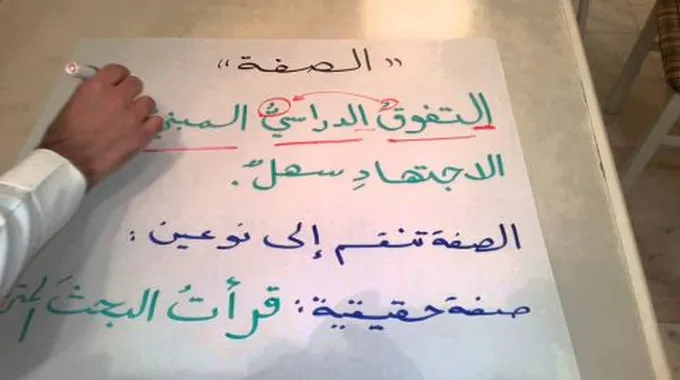 « الصفة »
التفوقُ الدراسيُّ المبني
الاجتهادِ سهلٌ .
الصفة تنقسم إلى نوعين :
صفة حقيقية : قرأتُ البحثَ